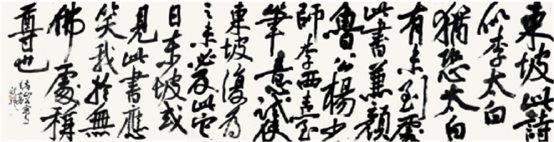 東坡此詩
似李太白
猶恐太白
有未到處
此書兼顏
魯公楊少
師李西臺
筆意試使
東坡復為
之未必及此它
日東坡或
見此書應
笑我於無
佛處稱
尊也